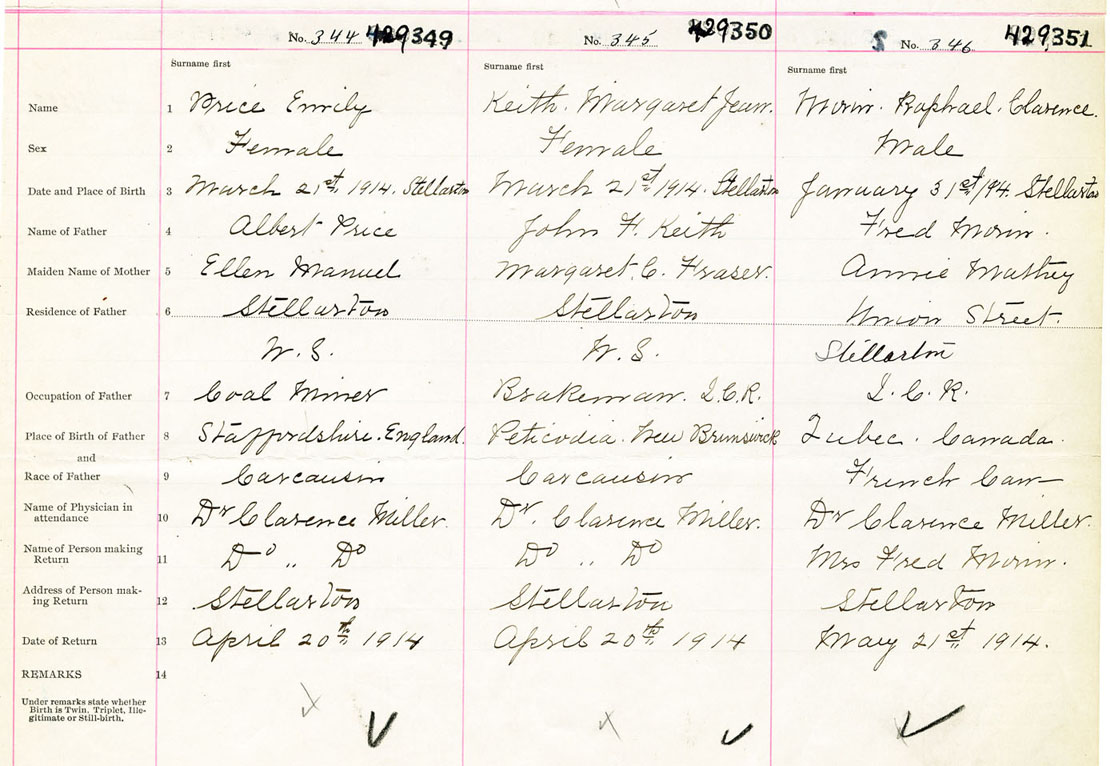 No. 344 429349 No. 345 429350 S No. 346 429351
Surname first Surname first Surname first
Name 1 Price Emily Keith. Margaret Jean. Morin. Raphael. Clarence.
Sex 2 Female Female Male
Date and Place of Birth 3 March 21st, 1914. Stellarton March 21st 1914. Stellarton January 31st/94. Stellarton
Name of Father 4 Albert Price John F. Keith Fred Morin.
Maiden Name of Mother 5 Ellen Manuel Margaret. C. Fraser. Annie Mathey
Residence of Father 6 Stellarton Stellarton Union Street.
N.S. N.S. Stellarton
Occupation of Father 7 Coal Miner Brakeman. I.C.R. I.C.R.
Place of Birth of Father 8 Staffordshire. England. Peticodia. New Brunswick Qubec. Canada.
and
Race of Father 9 Carcausin Carcausin French Can
Name of Physician in
attendance 10 Dr Clarence Miller. Dr. Clarence Miller. Dr Clarence Miller.
Name of Person making
Return 11 Do " Do Do " Do Mrs Fred Morin.
Address of Person mak-
ing Return 12 Stellarton Stellarton Stellarton
Date of Return 13 April 20th 1914 April 20th 1914 May 21st 1914.
REMARKS 14
Under remarks state whether
Birth is Twin, Triplet, Ille-
gitimate or Still-birth.